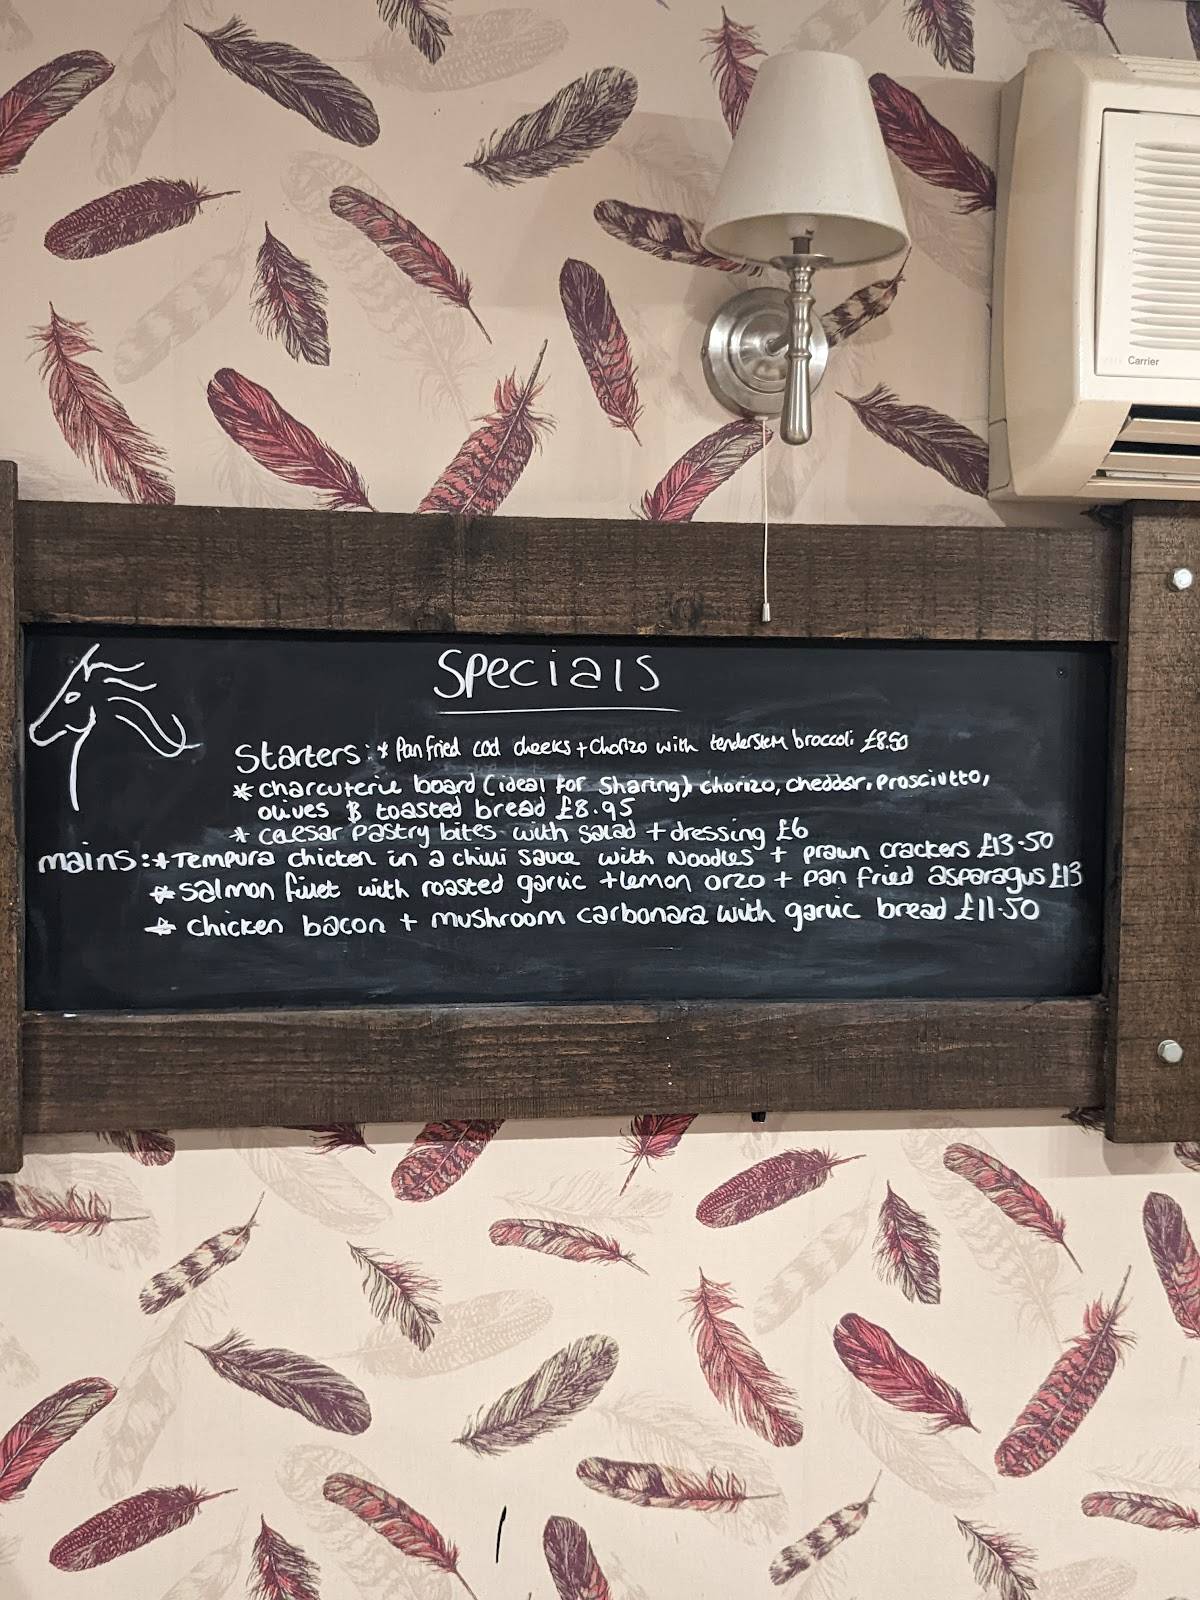 Carrier
Specials
Starters: * Pan fried cod cheeks + Chorizo with tenderstem broccoli £8.50
* charcuterie board (ideal for Sharing) chorizo, cheddar, Prosciutto,
olives & toasted bread £8.95
* caesar Pastry bites with salad + dressing £6
mains: * Tempura chicken in a chilli sauce with Noodles + prawn crackers £13.50
* Salmon fillet with roasted garlic + lemon orzo + pan fried asparagus £13
* chicken bacon + mushroom carbonara with garlic bread £11.50